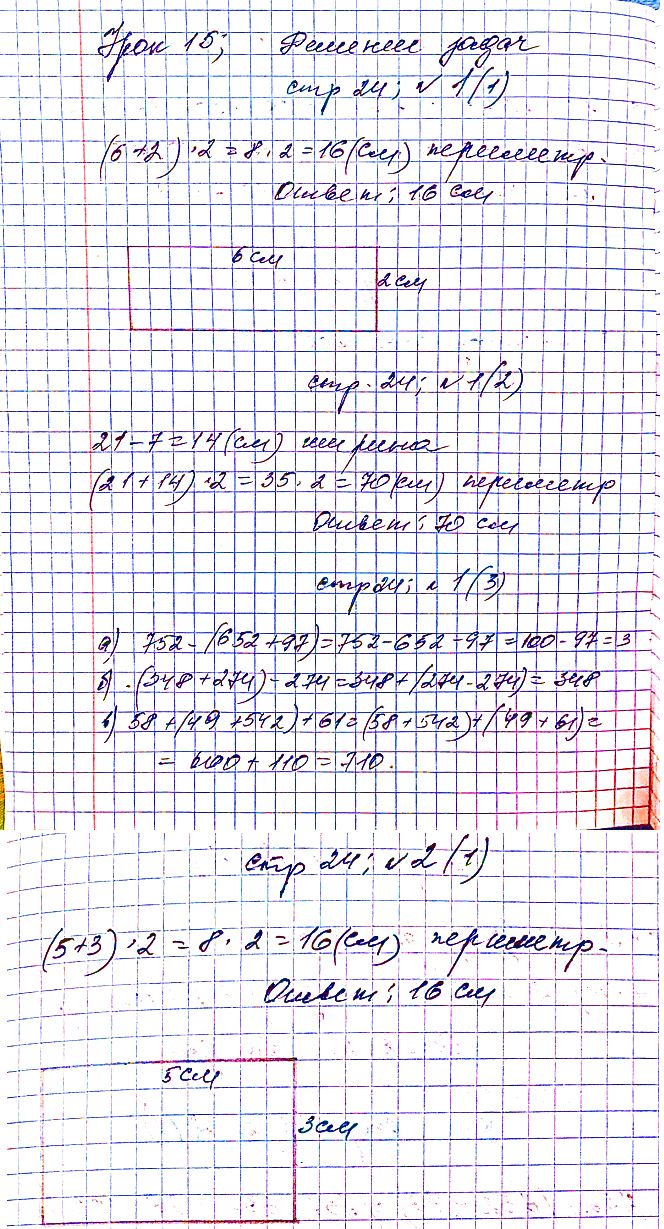 Урок 15; Решение задач
стр 24; № 1(1)
(6+2)·2=8·2=16(см) периметр.
Ответ: 16 см
6 см
2 см
стр. 24; № 1(2)
21-7=14(см) ширина
(21+14)·2=35·2=70(см) периметр
Ответ: 70 см
стр 24; № 1(3)
а) 752-(652+97)=752-652-97=100-97=3
б) (348+274)-274=348+(274-274)=348
в) 58+(49+542)+61=(58+542)+(49+61)=
= 600+110=710.
стр 24; № 2(1)
(5+3)·2=8·2=16(см) периметр.
Ответ: 16 см
5 см
3 см